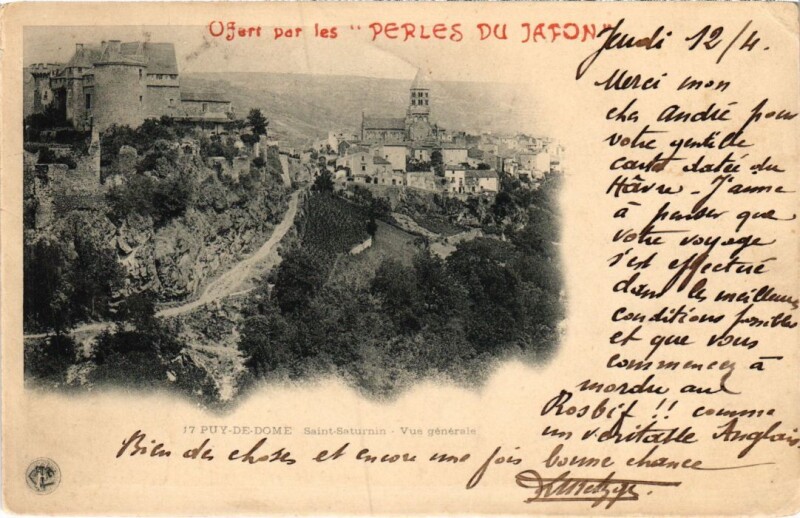 Offert par les "PERLES DU JAPON"
Jeudi 12/4.
Merci mon
cher André pour
votre gentille
carte datée du
Hâvre. J'aime
à penser que
votre voyage
s'est effectué
dans les meilleures
conditions possibles
et que vous
commencez à
mordre au
Rosbif !! comme
un véritable Anglais.
17 PUY-DE-DOME Saint-Saturnin - Vue générale
Bien des choses et encore une fois bonne chance